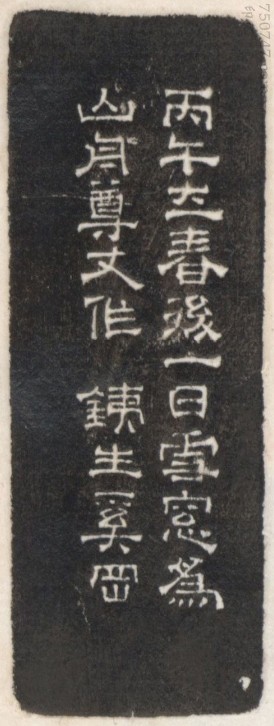 丙午立春後一日雪窓為
山舟尊丈作 鐵生奚岡